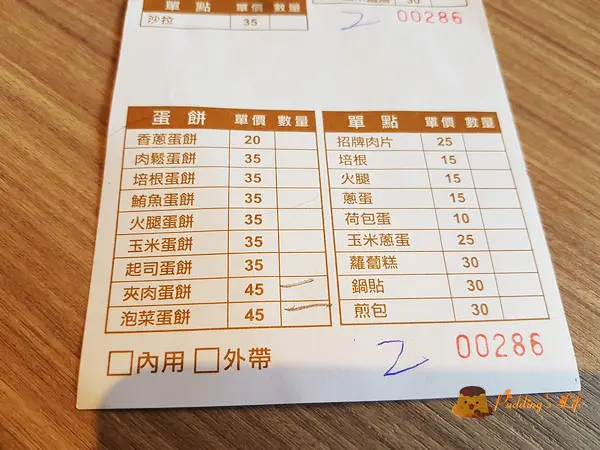 單點 單價 數量
沙拉 35
30
2 00286
蛋餅 單價 數量
香蔥蛋餅 20
肉鬆蛋餅 35
培根蛋餅 35
鮪魚蛋餅 35
火腿蛋餅 35
玉米蛋餅 35
起司蛋餅 35
夾肉蛋餅 45 一
泡菜蛋餅 45 一
單點 單價 數量
招牌肉片 25
培根 15
火腿 15
蔥蛋 15
荷包蛋 10
玉米蔥蛋 25
蘿蔔糕 30
鍋貼 30
煎包 30
□內用 □外帶
2 00286
Pudding's Life